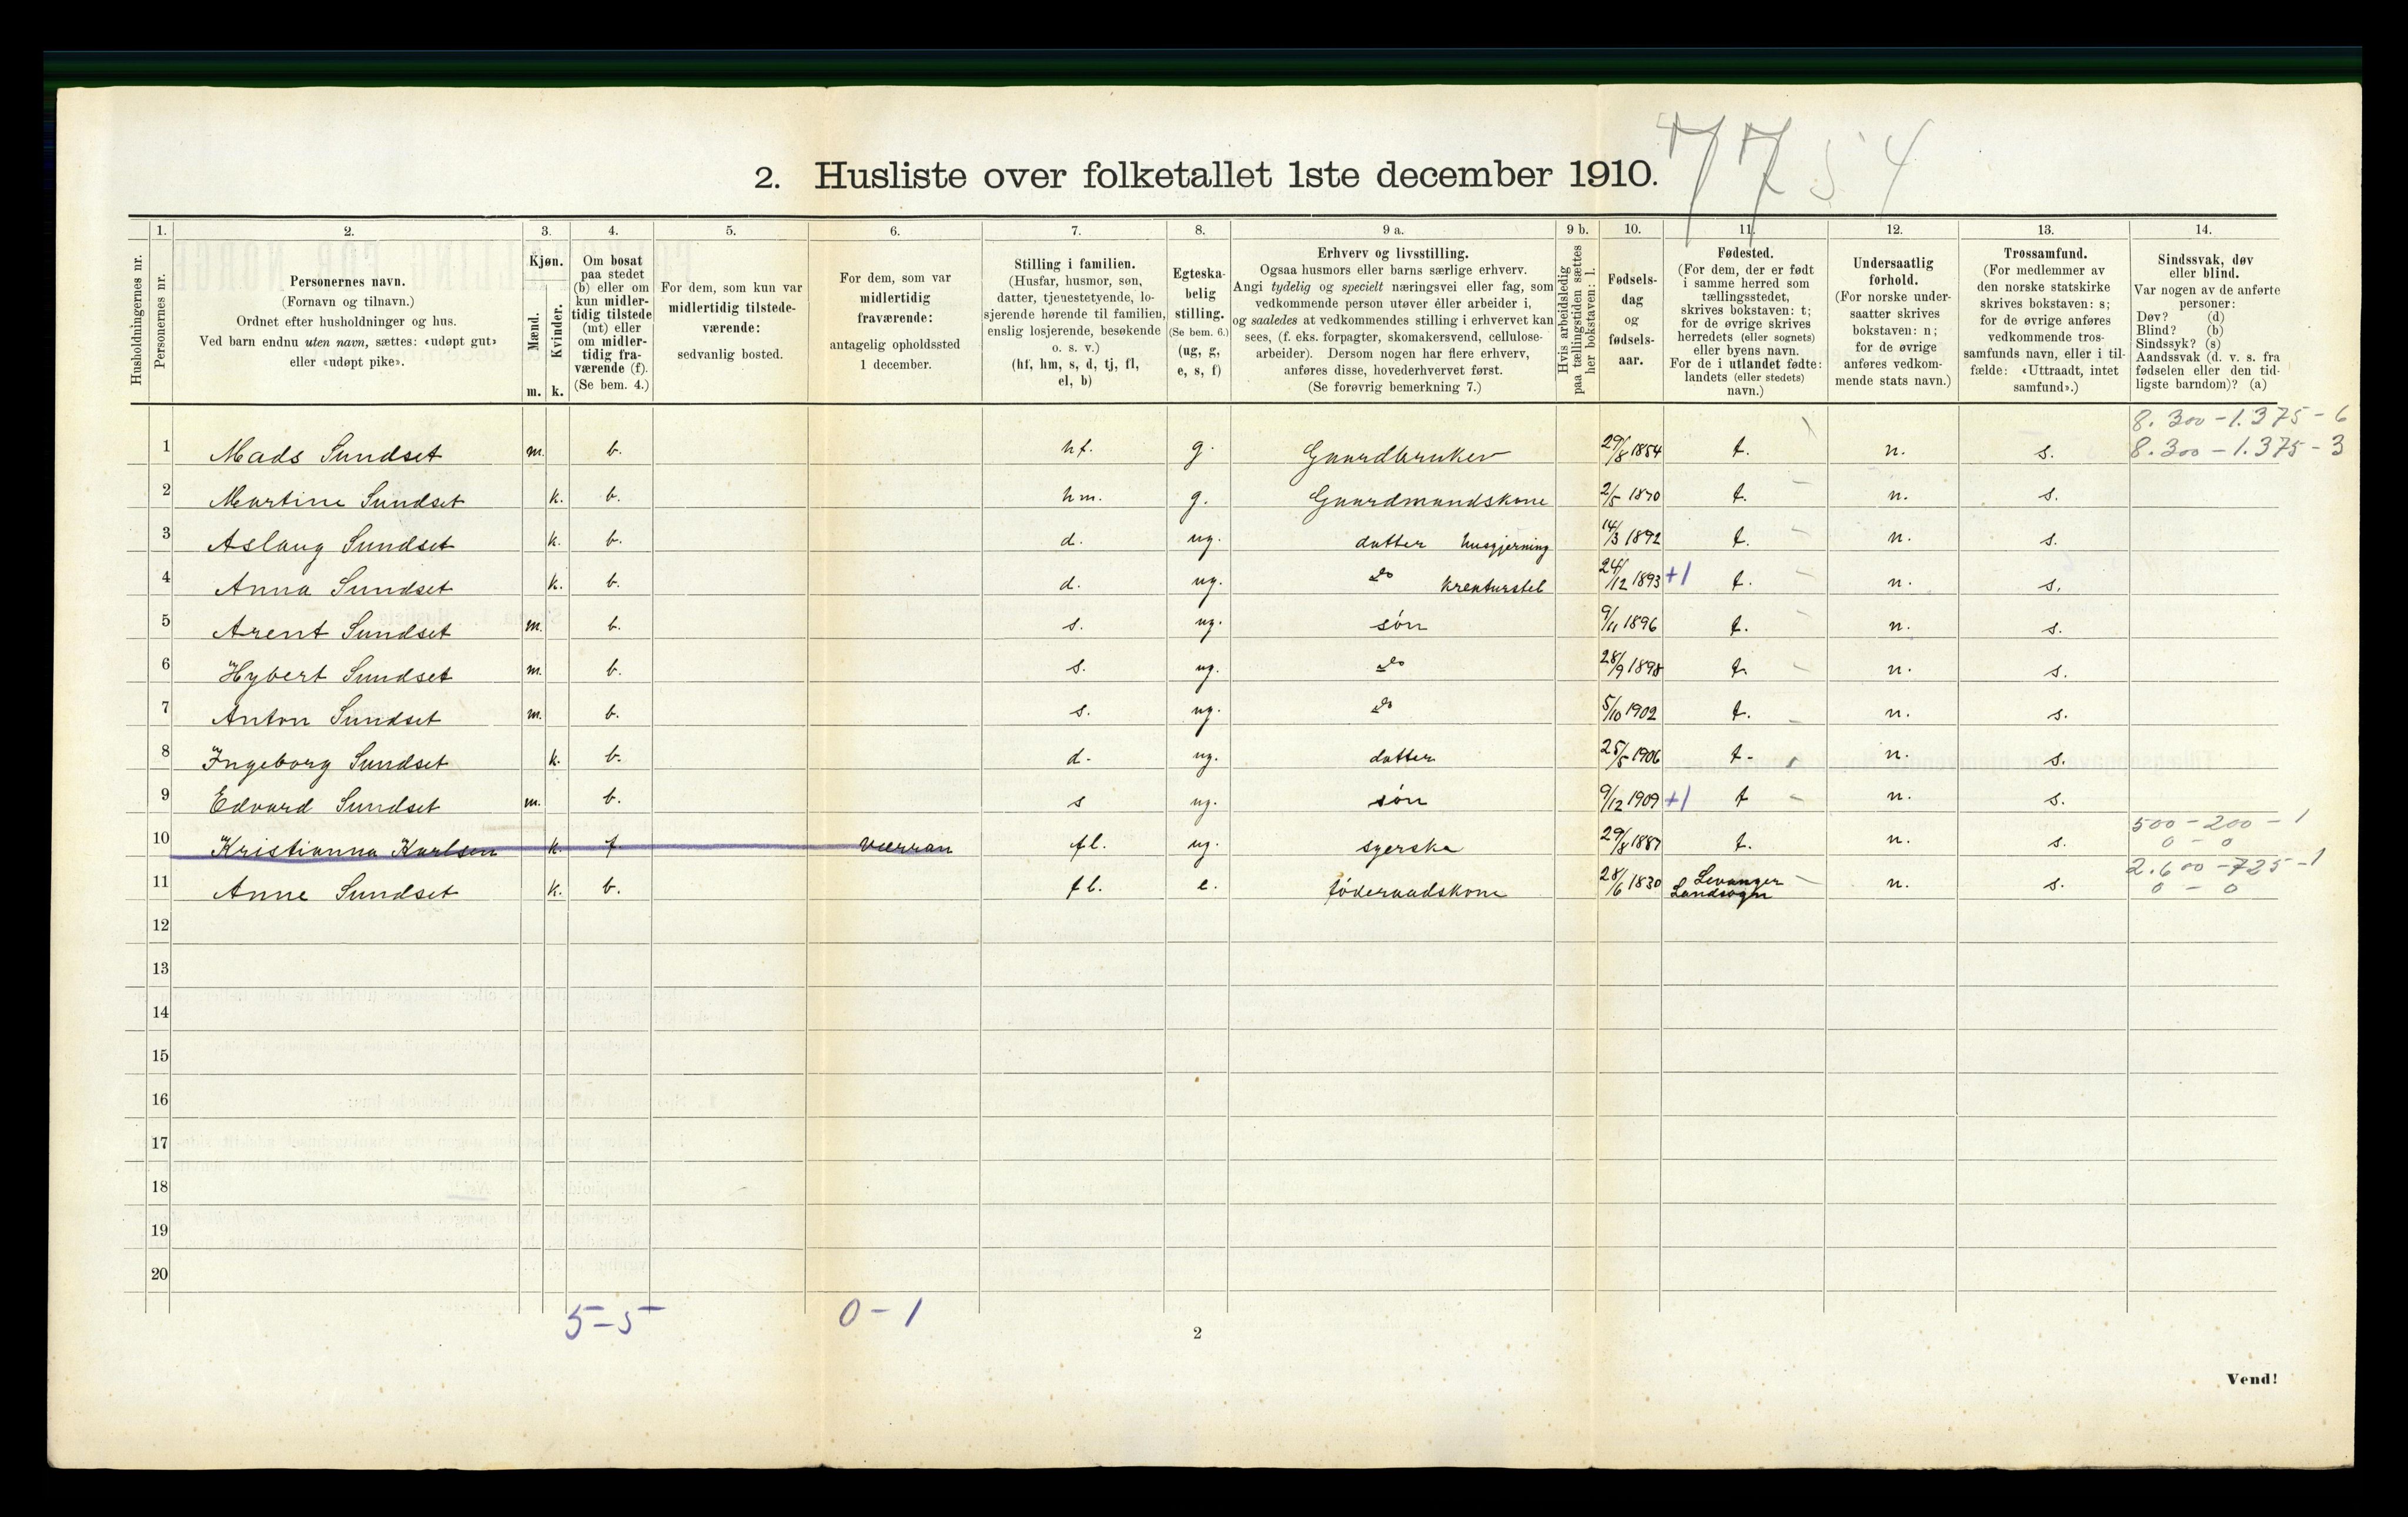 7754
2. Husliste over folketallet 1ste december 1910.
Husholdningernes nr.
1. Personernes nr.
2. Personernes navn.
(Fornavn og tilnavn.)
Ordnet efter husholdninger og hus.
Ved barn endnu uten navn, sættes: «udøpt gut»
eller «udøpt pike».
3. Kjøn.
Mænd. Kvinder.
m. k.
4. Om bosat
paa stedet
(b) eller om
kun midler-
tidig tilstede
(mt) eller
om midler-
tidig fra-
værende (f).
(Se bem. 4.)
5. For dem, som kun var
midlertidig tilstede-
værende:
sedvanlig bosted.
6. For dem, som var
midlertidig
fraværende:
antagelig opholdssted
1 december.
7. Stilling i familien.
(Husfar, husmor, søn,
datter, tjenestetyende, lo-
sjerende hørende til familien,
enslig losjerende, besøkende
o. s. v.)
(hf, hm, s, d, tj, fl,
el, b)
8. Egteska-
belig
stilling.
(Se bem. 6.)
(ug, g,
e, s, f)
9 a. Erhverv og livsstilling.
Ogsaa husmors eller barns særlige erhverv.
Angi tydelig og specielt næringsvei eller fag, som
vedkommende person utøver éller arbeider i,
og saaledes at vedkommendes stilling i erhvervet kan
sees, (f. eks. forpagter, skomakersvend, cellulose-
arbeider). Dersom nogen har flere erhverv,
anføres disse, hovederhvervet først.
(Se forøvrig bemerkning 7.)
9 b. Hvis arbeidsledig
paa tællingstiden sættes
her bokstaven: l.
10. Fødsels-
dag
og
fødsels-
aar.
11. Fødested.
(For dem, der er født
i samme herred som
tællingsstedet,
skrives bokstaven: t;
for de øvrige skrives
herredets (eller sognets)
eller byens navn.
For de i utlandet fødte:
landets (eller stedets)
navn.)
12. Undersaatlig
forhold.
(For norske under-
saatter skrives
bokstaven: n;
for de øvrige
anføres vedkom-
mende stats navn.)
13. Trossamfund.
(For medlemmer av
den norske statskirke
skrives bokstaven: s;
for de øvrige anføres
vedkommende tros-
samfunds navn, eller i til-
fælde: «Uttraadt, intet
samfund».)
14. Sindssvak, døv
eller blind.
Var nogen av de anførte
personer:
Døv? (d)
Blind? (b)
Sindssyk? (s)
Aandssvak (d. v. s. fra
fødselen eller den tid-
ligste barndom)? (a)
8.300 - 1.375 - 6
1 Mads Sundset m. b. hf. g. Gaardbruker 29/8 1854 t. n. s. 8.300 - 1.375 - 3
2 Martine Sundset k. b. hm. g. Gaardmandskone 2/5 1870 t. n. s.
3 Aslaug Sundset k. b. d. ug. datter husgjerning 14/3 1892 t. n. s.
4 Anna Sundset k. b. d. ug. do kreaturstel 24/12 1893 +1 t. n. s.
5 Arent Sundset m. b. s. ug. søn 9/11 1896 t. n. s.
6 Hybert Sundset m. b. s. ug. do 28/9 1898 t. n. s.
7 Anton Sundset m. b. s. ug. do 5/10 1902 t. n. s.
8 Ingeborg Sundset k. b. d. ug. datter 25/5 1906 t. n. s.
9 Edvard Sundset m. b. s ug. søn 9/12 1909 +1 t n. s.
500 - 200 - 1
10 Kristianna Karlsen k. f. Værran fl. ug. syerske 29/8 1887 t. n. s. 0 - 0
2.600 - 725 - 1
11 Anne Sundset k. b. fl. e. føderaadskone 28/6 1830 Levanger Landsogn n. s. 0 - 0
12
13
14
15
16
17
18
19
20
5 - 5 0 - 1
2
Vend!